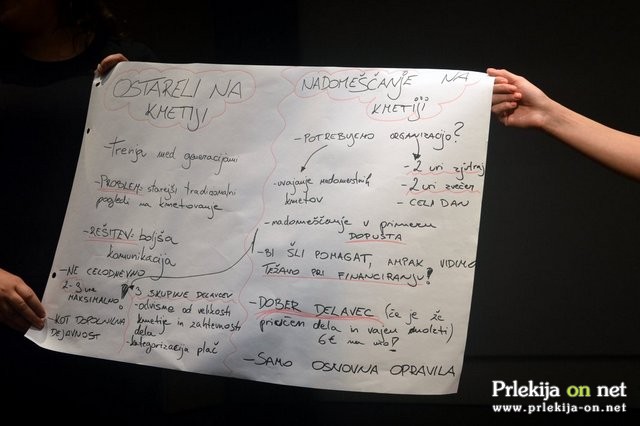 OSTARELI NA
KMETIJI
- Trenja med generacijami
- PROBLEM: starejši tradicionalni
pogledi na kmetovanje
- REŠITEV: boljša
komunikacija
- NE CELODNEVNO
2-3 ure
MAKSIMALNO!
- KOT DOPOLNILNA
DEJAVNOST
3 SKUPINE DELAVCEV
- odvisno od velikosti
kmetije in zahtevnosti
dela
- kategorizacija plač
NADOMEŠČANJE NA
KMETIJI
- POTREBUJEMO ORGANIZACIJO?
- uvajanje nadomestnih
kmetov
- 2 uri zjutraj
- 2 uri zvečer
- CELI DAN
- nadomeščanje v primeru
DOPUSTA
- BI ŠLI POMAGAT, AMPAK VIDIMO
TEŽAVO PRI FINANCIRANJU!
- DOBER DELAVEC (če je že
priučen dela in vajen molzti)
6€ na uro!
- SAMO OSNOVNA OPRAVILA
Prlekija on net
www.prlekija-on.net